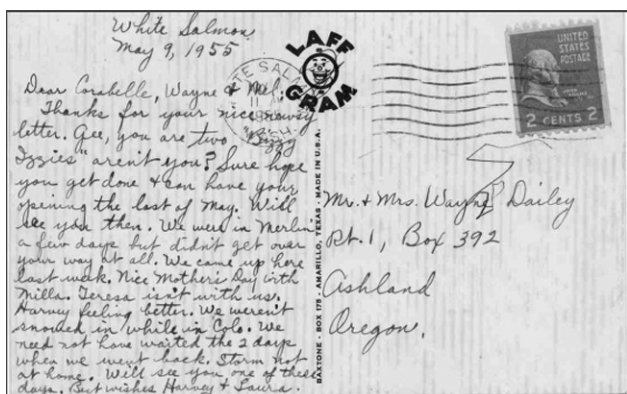 White Salmon
May 9, 1955
Dear Corabelle, Wayne & Mel:
Thanks for your nice newsy
letter. Gee, you are two "Bizzy
Izzies" aren't you? Sure hope
you get done & can have your
opening the last of May. Will
see you then. We were in Merlin
a few days but didn't get over
your way at all. We came up here
last week. Nice Mother's Day with
Milla. Teresa isn't with us.
Harvey feeling better. We weren't
snowed in while in Colo. We
need not have waited the 2 days
when we went back. Storm not
at home. Will see you one of these
days. Best wishes Harvey & Laura.
LAFF
GRAM
BAXTONE - BOX 175 - AMARILLO, TEXAS - MADE IN U.S.A.
UNITED
STATES
POSTAGE
2 CENTS 2
Mr. & Mrs. Wayne Dailey
Rt. 1, Box 392
Ashland
Oregon.